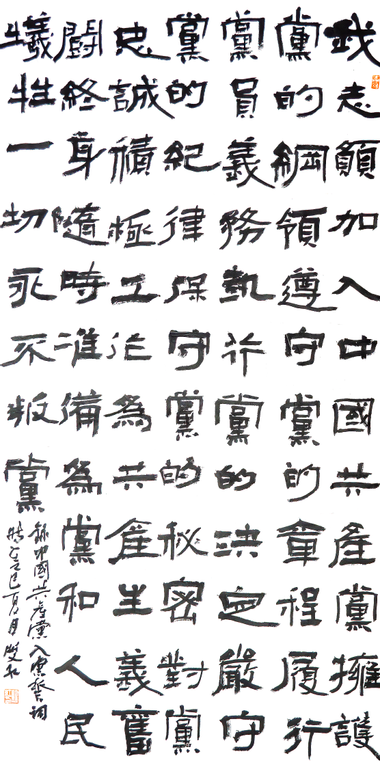 我志願加入中國共產黨擁護
黨的綱領遵守黨的章程履行
黨員義務執行黨的決定嚴守
黨的紀律保守黨的秘密對黨
忠誠積極工作為共產主義奮
鬪終身隨時准備為黨和人民
犧牲一切永不叛黨
錄中國共產黨入黨誓詞
時在乙巳夏月